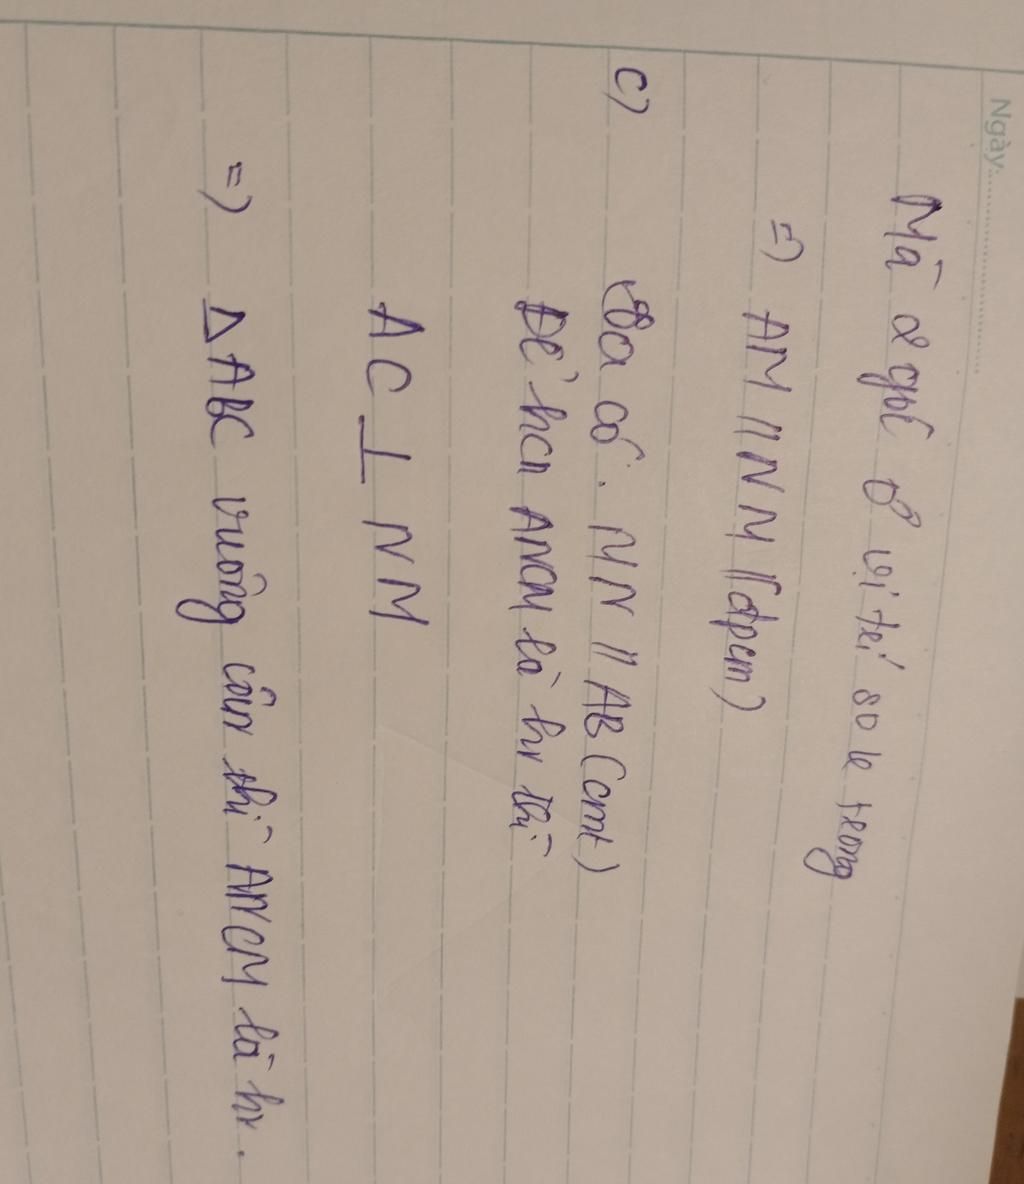 Ngày:
Mà 2 góc ở vị trí so le trong
=) AM // NM (đpcm)
c) Ta có: MN // AB (cmt)
Để hcn ANCM là hv thì
AC ⊥ NM
=) △ABC vuông cân thì ANCM là hv.